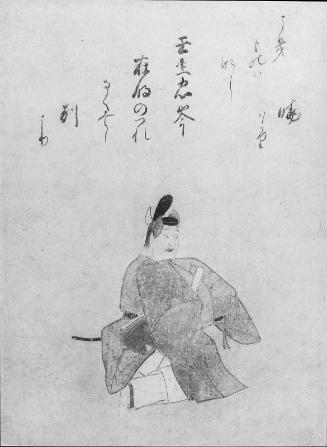 壬生忠岑
在明のつれ
なくみえし
別
より
暁
はかり
うき
ものは
なし